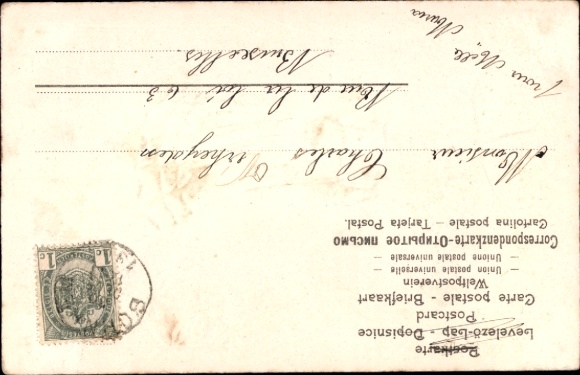 Postkarte
Levelező-Lap - Dopisnice
Postcard
Carte postale - Briefkaart
Weltpostverein
— Union postale universelle —
— Unione postale universale —
Correspondenzkarte-Открытое письмо
Cartolina postale — Tarjeta Postal.
1c 1c
Monsieur Charles
Rue de la Loi 63
Bruxelles.